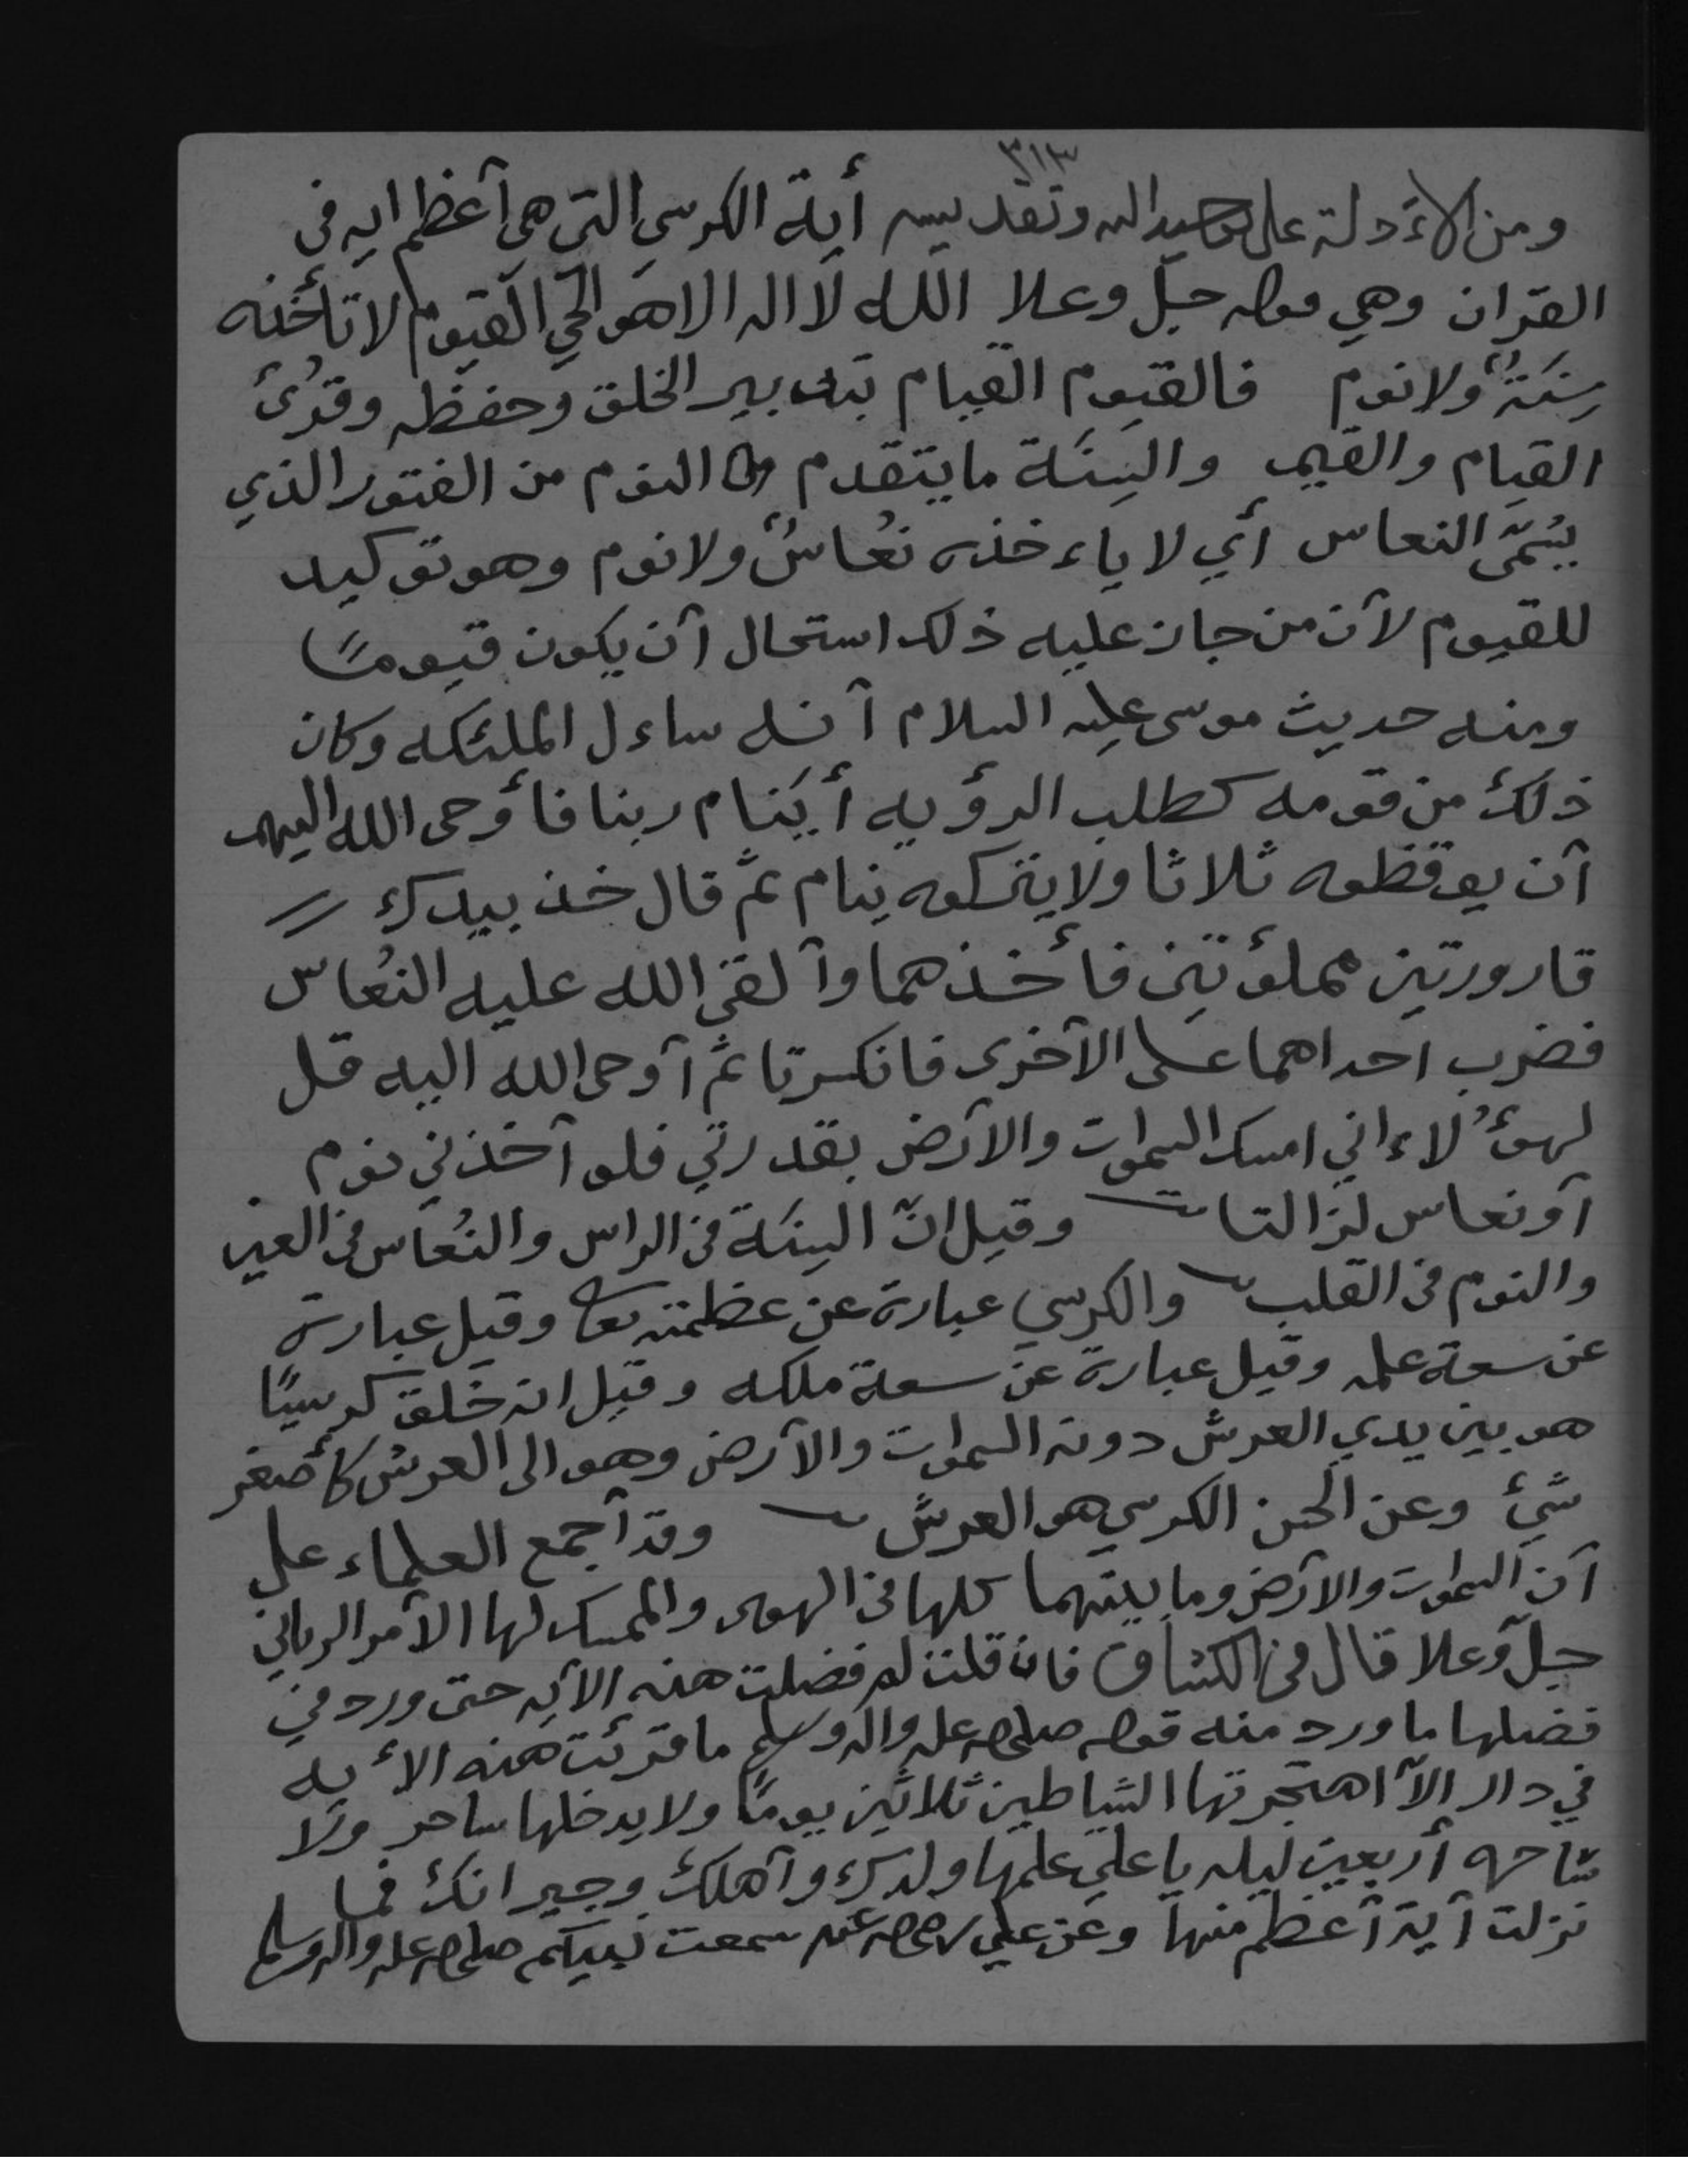 ٣١٣
ومن الاءدلة على توحيد الله وتقديسه أية الكرسي التي هي آعظم ايه في
القران وهي قوله جل وعلا الله لا اله الا هو الحي القيوم لا تأخذه
سِنَةٌ ولا نوم فالقيوم القيام بتدبير الخلق وحفظه وقرئ
القيام والقيم والسِنَة ما يتقدم من النوم من الفتور الذي
يُسَمّى النعاس أي لا ياءخذه نُعَاسٌ ولا نوم وهو توكيد
للقيوم لآن من جاز عليه ذلك استحال آن يكون قيومًا
ومنه حديث موسى عليه السلام آنه ساءل الملئكه وكان
ذلك من قومه كطلب الرؤيه أينام ربنا فأوحى الله اليهم
آن يوقظوه ثلاثا ولا يتركوه ينام ثم قال خذ بيدك
قارورتين مملؤتين فأخذهما وآلقى الله عليه النُعاس
فضرب احداهما على الآخرى فانكسرتا ثم آوحى الله اليه قل
لهؤلاء اني امسك السموات والآرض بقدرتي فلو آخذني نوم
آو نعاس لزالتا وقيل انّ السِنَة في الراس والنُعاس في العين
والنوم في القلب والكرسي عبارة عن عظمته تعالى وقيل عبارة
عن سعة علمه وقيل عبارة عن سعة ملكه وقيل انه خلق كرسيًا
هو بين يدي العرش دونه السموات والآرض وهو الى العرش كأصغر
شيئ وعن الحسن الكرسي هو العرش وقد آجمع العلماء على
آن السموات والآرض وما بينهما كلها في الهوى والممسك لها الآمر الرباني
جل وعلا قال في الكشاف فان قلت لم فضلت هذه الآيه حتى ورد في
فضلها ما ورد منه قوله صلى الله عليه واله وسلم ما قرئت هذه الأيه
في دار الاّ اهتجرتها الشياطين ثلاثين يومًا ولا يدخلها ساحر ولا
ساحره أربعين ليله يا علي علمها ولدك وآهلك وجيرانك فما
نزلت آية آعظم منها وعن علي رضي الله عنه سمعت نبيكم صلى الله عليه واله وسلم